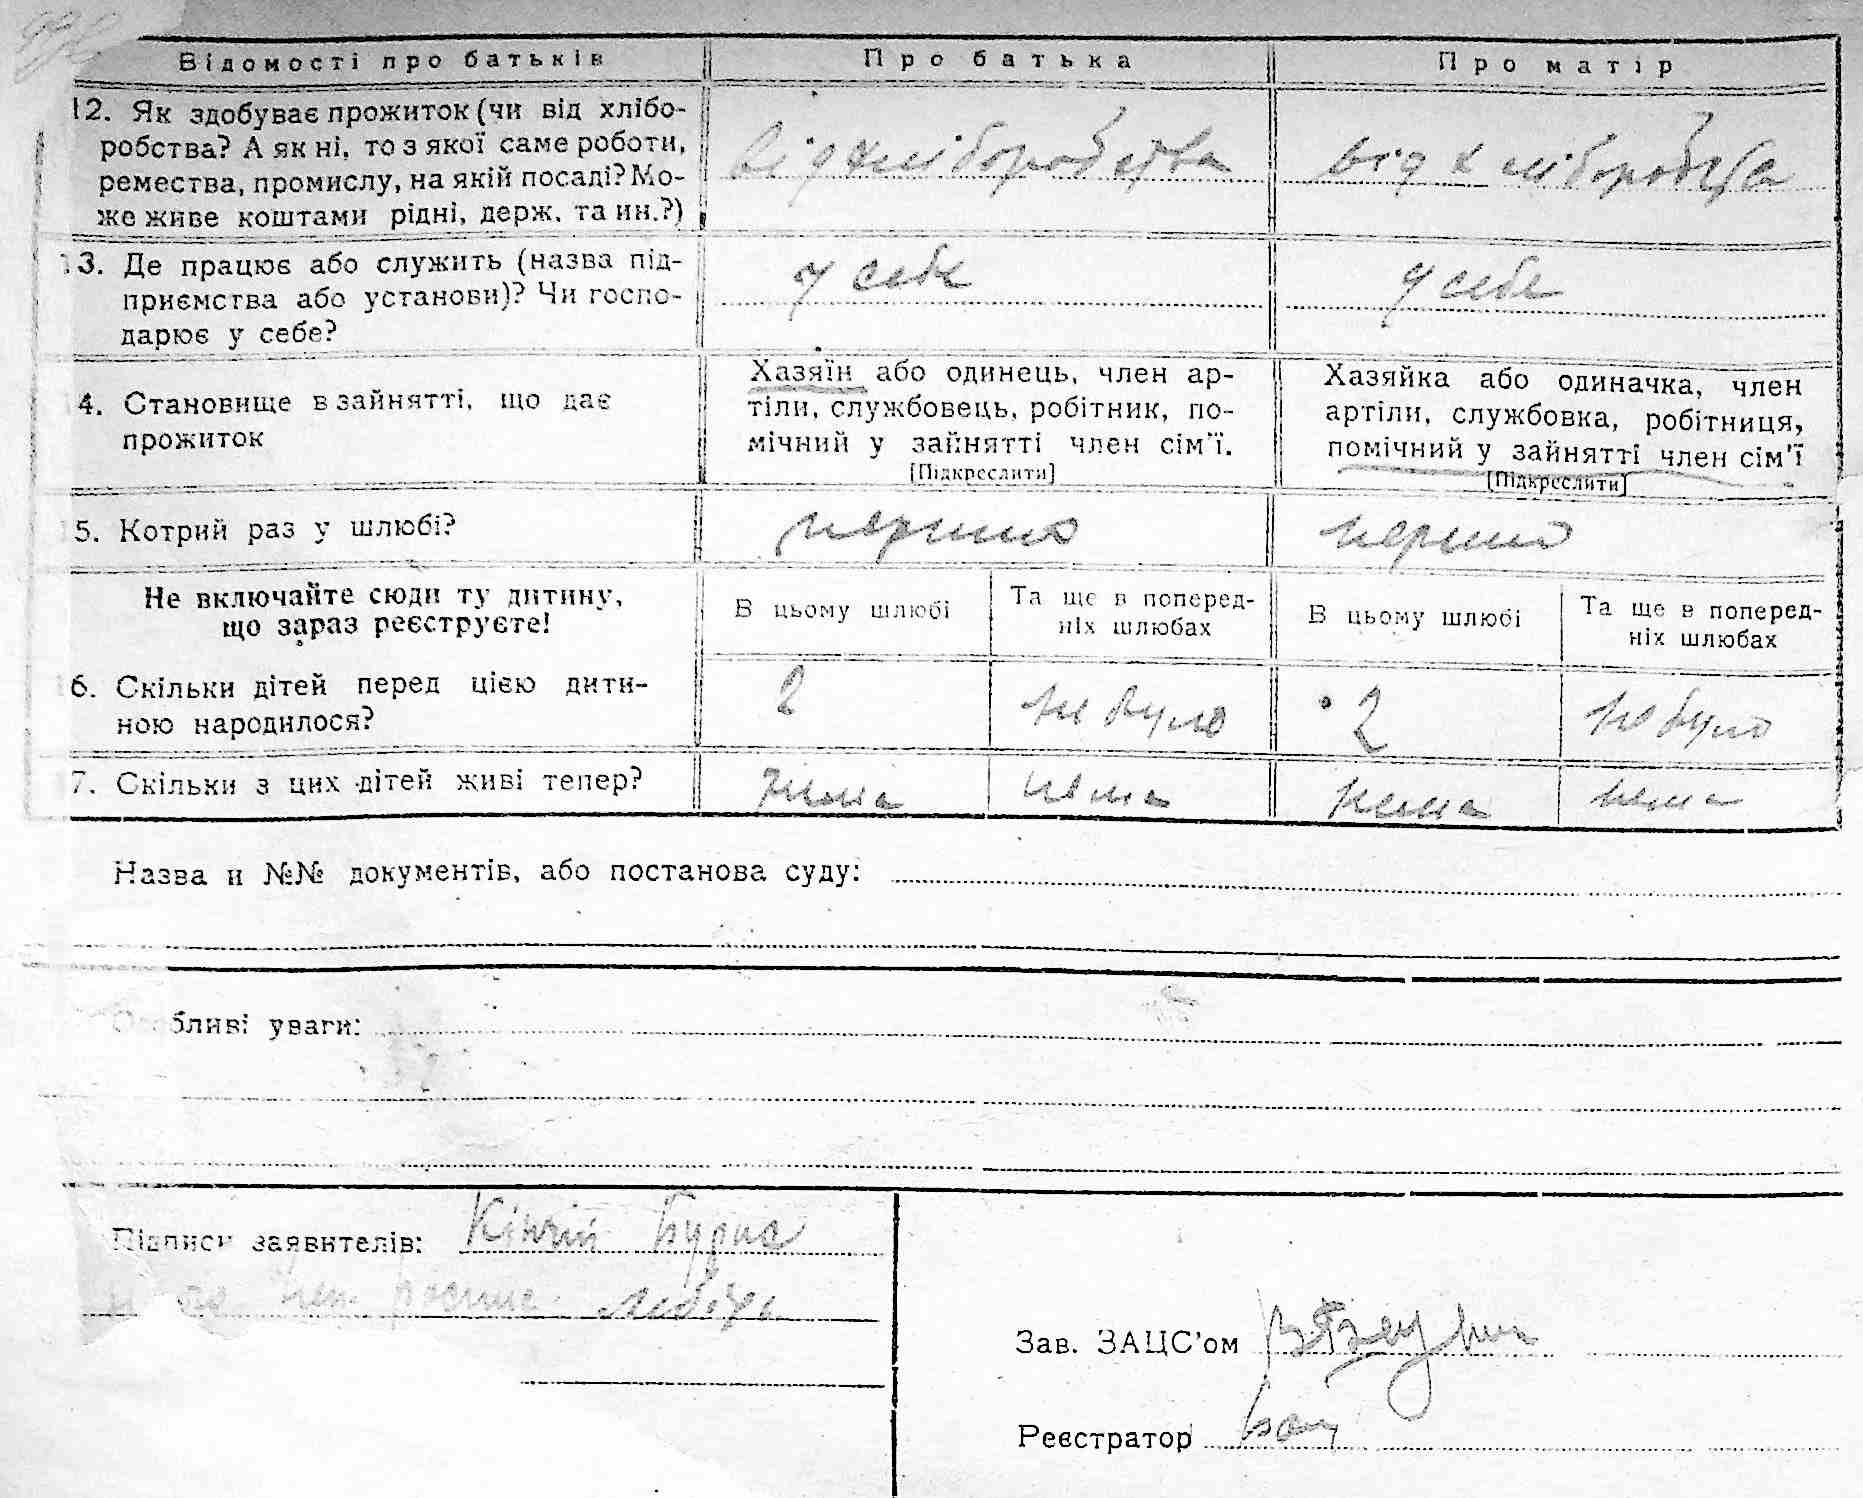 Відомості про батьків Про батька Про матір
12. Як здобуває прожиток (чи від хлібо-
робства? А як ні, то з якої саме роботи,
ремества, промислу, на якій посаді? Мо-
же живе коштами рідні, держ. та ин.?)
від хліборобства від хліборобства
13. Де працює або служить (назва під-
приємства або установи)? Чи госпо-
дарює у себе?
у себе у себе
4. Становище в зайнятті, що дає
прожиток
Хазяїн або одинець, член ар-
тіли, службовець, робітник, по-
мічний у зайнятті член сім'ї.
[Підкреслити]
Хазяйка або одиначка, член
артіли, службовка, робітниця,
помічний у зайнятті член сім'ї
[Підкреслити]
5. Котрий раз у шлюбі?
Не включайте сюди ту дитину,
що зараз реєструєте!
В цьому шлюбі
Та ще в поперед-
ніх шлюбах
В цьому шлюбі
Та ще в поперед-
ніх шлюбах
6. Скільки дітей перед цією дити-
ною народилося?
2 не було 2 не було
7. Скільки з цих дітей живі тепер? нема нема нема нема
Назва и №№ документів, або постанова суду:
Особливі уваги:
Підписи заявителів:
Зав. ЗАЦС'ом
Реєстратор